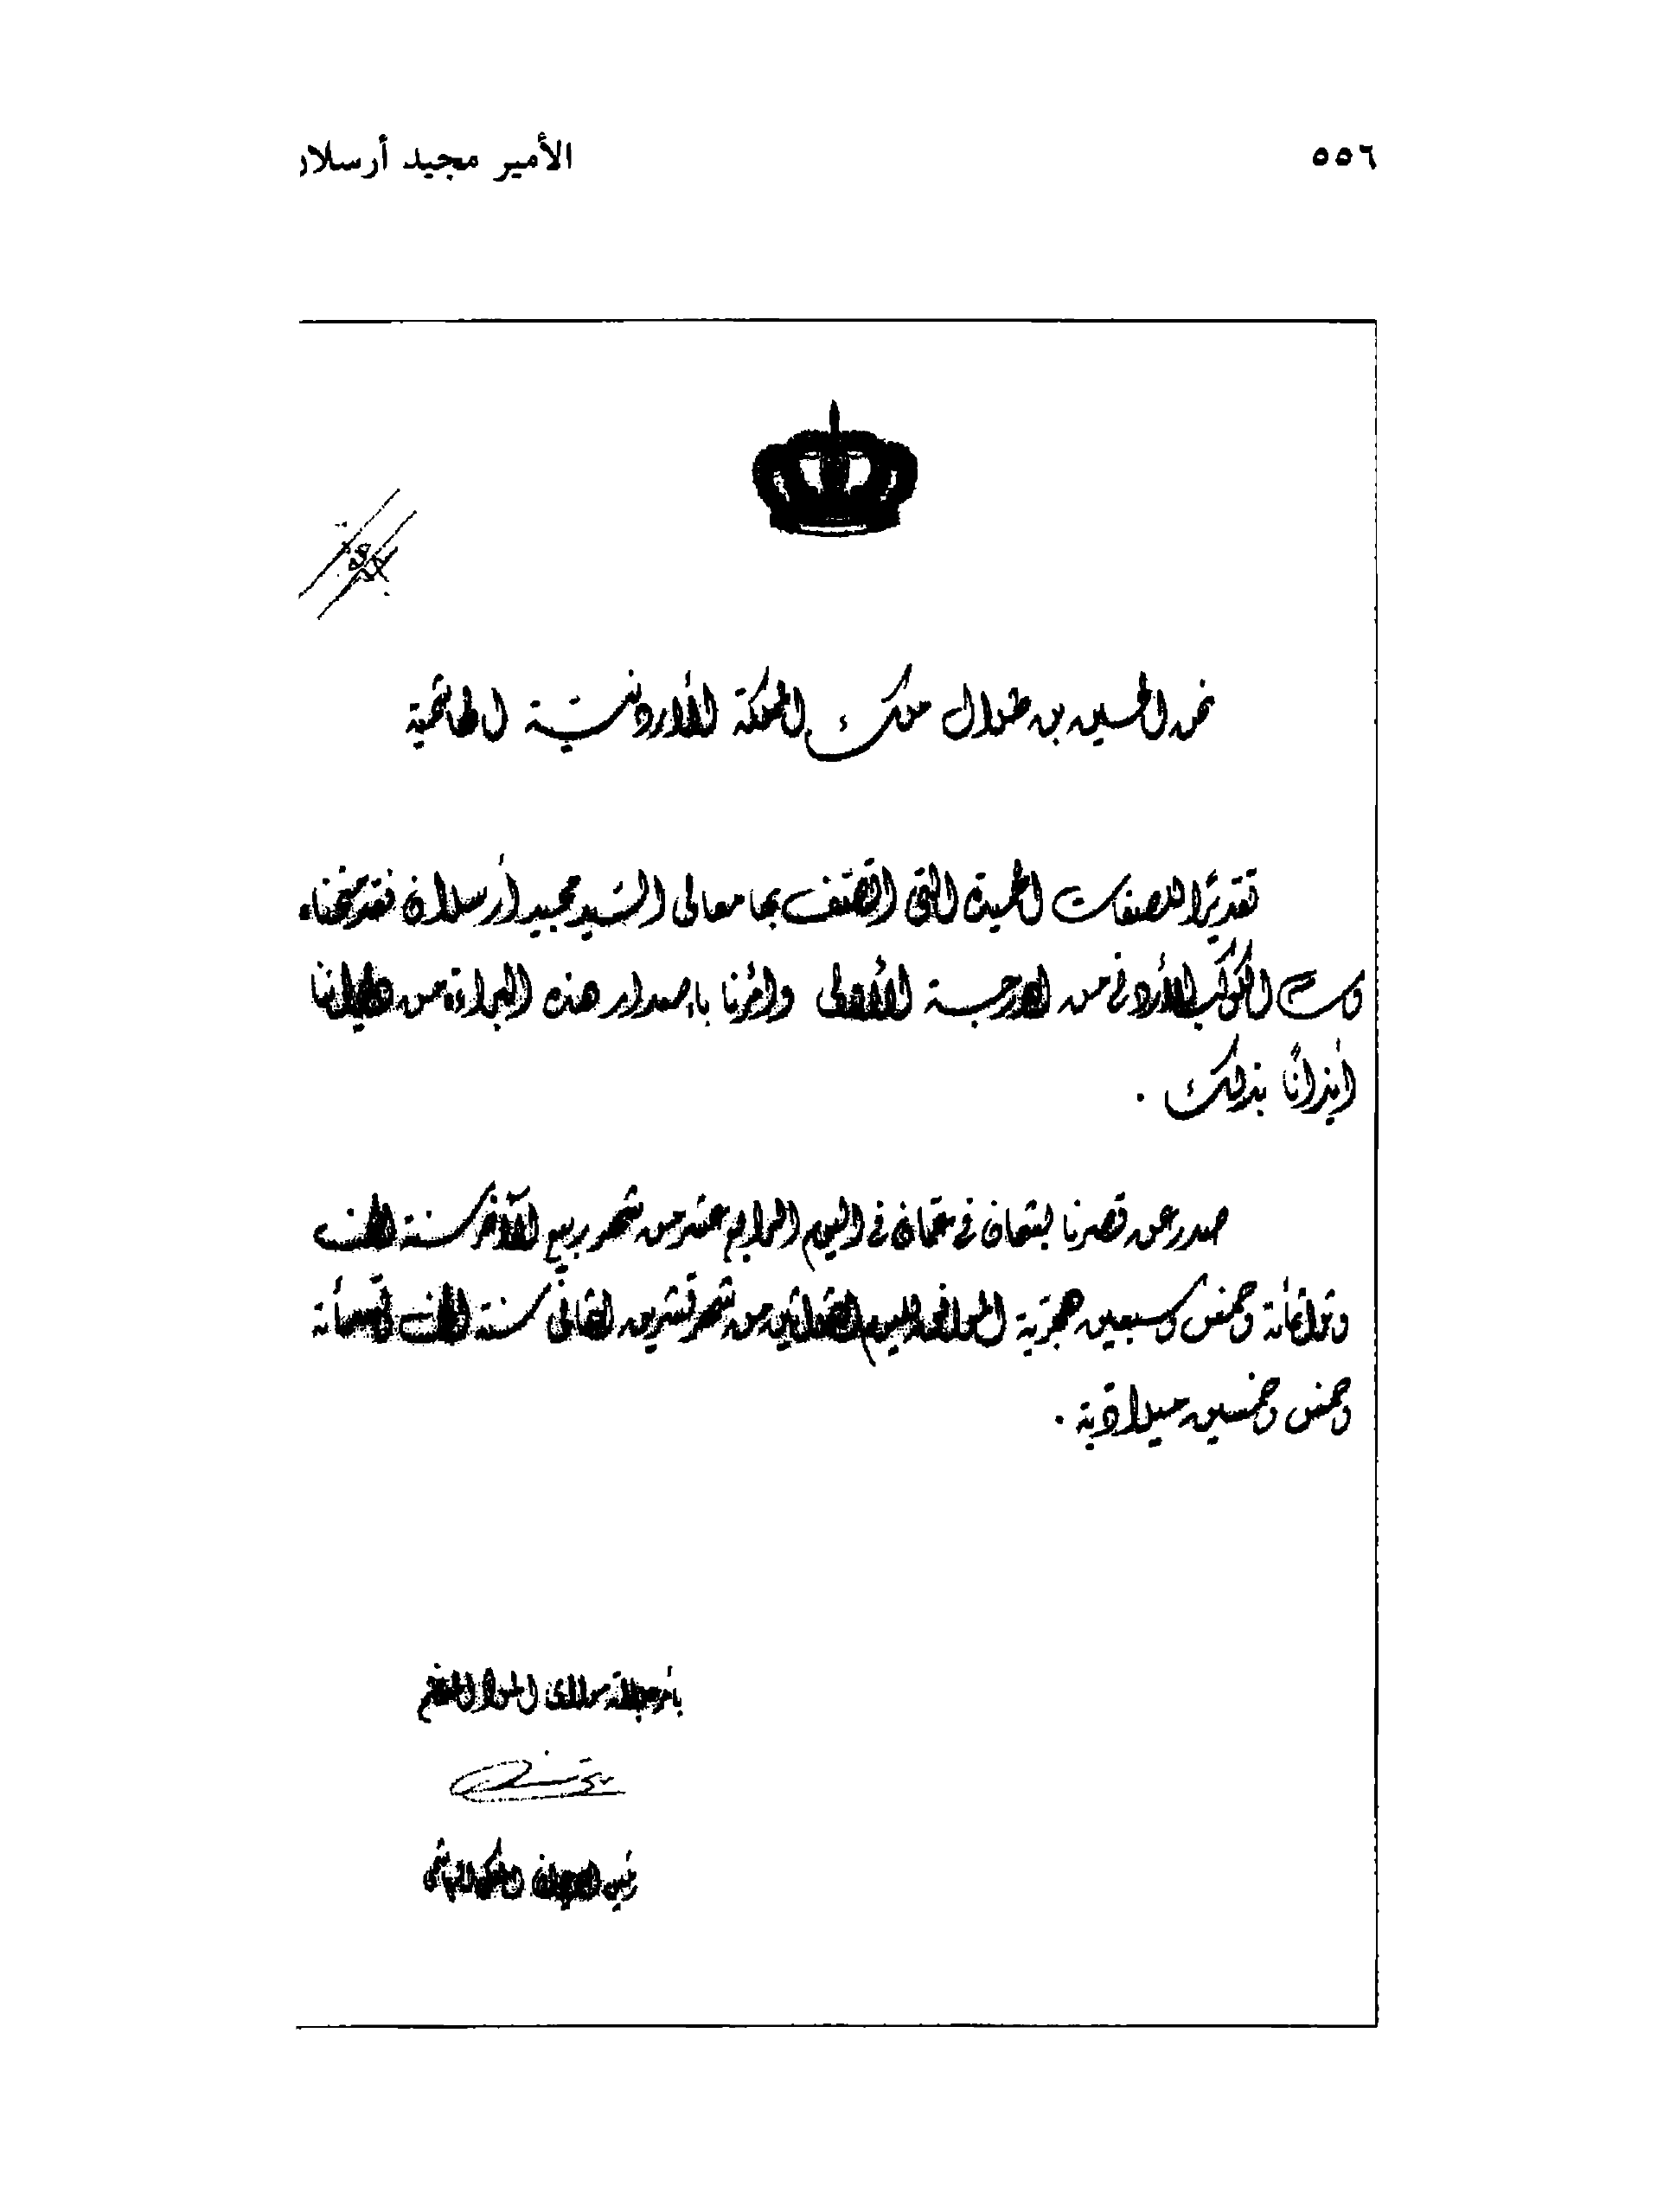 ٥٥٦
الأمير مجيد أرسلان
نحن الحسين بن طلال ملك المملكة الأردنية الهاشمية
تقديرًا للصفات الحميدة التي اتصف بها معالي السيد مجيد أرسلان فقد منحناه
وسام الكوكب الأردني من الدرجة الأولى وأمرنا بإصدار هذه البراءة من ديواننا
أيذانًا بذلك .
صدر عن قصرنا بسمان في عمان في اليوم الرابع عشر من شهر ربيع الآخر سنة الف
وثلاثمائة وخمس وسبعين هجرية الموافق لليوم الثلاثين من شهر تشرين الثاني سنة الف وتسعمائة
وخمس وخمسين ميلادية .
بأمر جلالة مولاي الملك المعظم
رئيس الديوان الملكي الهاشمي